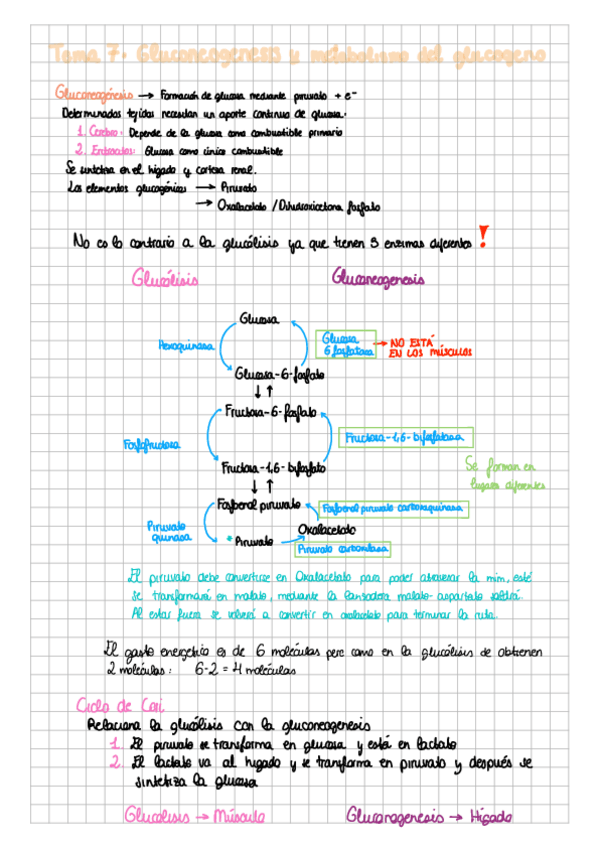 Tema 7: Gluconeogenesis y metabolismo del glucogeno
Gluconeogénesis → Formación de glucosa mediante piruvato + e-
Determinados tejidos necesitan un aporte continuo de glucosa.
1. Cerebro: Depende de la glucosa como combustible primario
2. Eritrocitos: Glucosa como único combustible
Se sintetiza en el hígado y corteza renal.
Los elementos glucogénicos → Piruvato
→ Oxalacetato / Dihidroxicetona fosfato
No es lo contrario a la glucólisis ya que tienen 3 enzimas diferentes !
Glucólisis Gluconeogenesis
Glucosa
Hexoquinasa
Glucosa
6 fosfatasa
→ NO ESTÁ
EN LOS MÚSCULOS
Glucosa-6-fosfato
↓↑
Fructosa-6-fosfato
Fosfofructosa
Fructosa-1,6-bifosfatasa
Fructosa-1,6-bifosfato
Se forman en
lugares diferentes
↓↑
Fosfoenol piruvato
Fosfoenol piruvato carboxiquinasa
Piruvato
quinasa
Oxalacetato
* Piruvato
Piruvato carboxilasa
El piruvato debe convertirse en Oxalacetato para poder atravesar la mim, esté
se transformará en malato, mediante la lanzadera malato-aspartato saldrá.
Al estar fuera se volverá a convertir en oxalacetato para terminar la ruta.
El gasto energético es de 6 moléculas pero como en la glucólisis se obtienen
2 moléculas: 6-2 = 4 moléculas
Ciclo de Cori
Relaciona la glucólisis con la gluconeogenesis
1. El piruvato se transforma en glucosa y está en lactato
2. El lactato va al hígado y se transforma en piruvato y después se
sintetiza la glucosa
Glucolisis → Músculo Gluconogenesis → Hígado